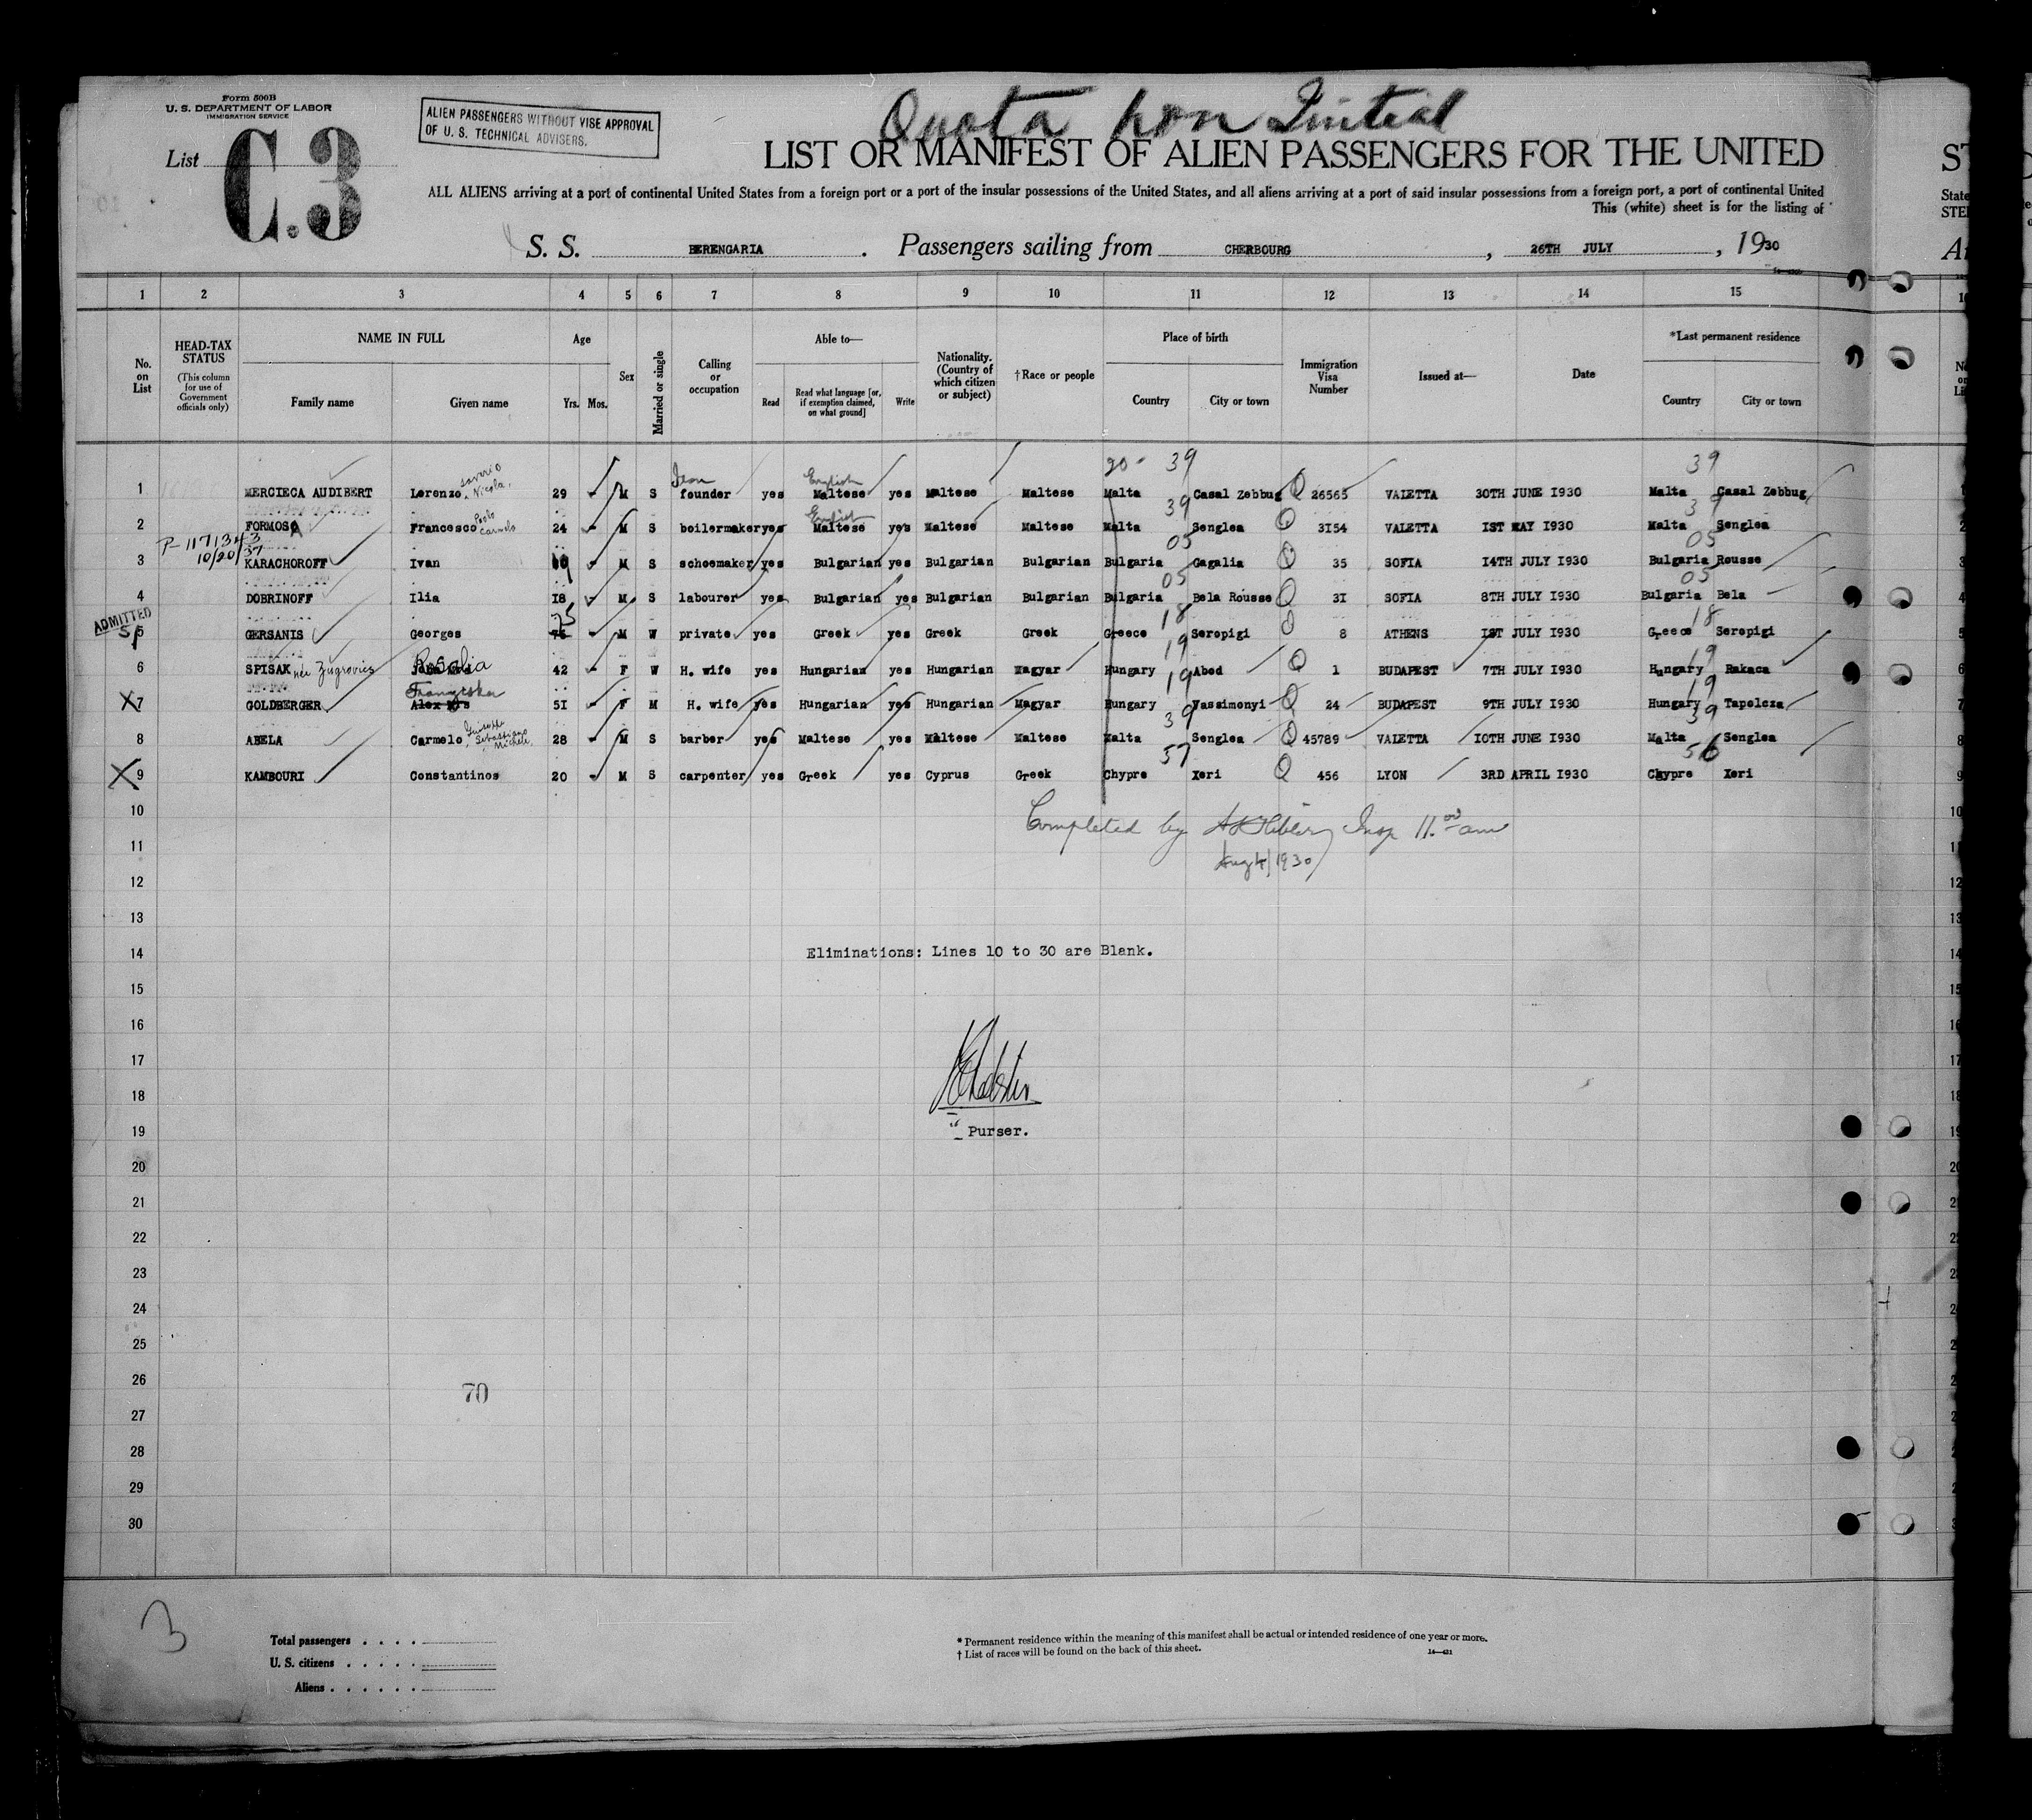 Form 500B
U. S. DEPARTMENT OF LABOR
IMMIGRATION SERVICE
List C.3
ALIEN PASSENGERS WITHOUT VISE APPROVAL
OF U. S. TECHNICAL ADVISERS.
Quota non Initial
LIST OR MANIFEST OF ALIEN PASSENGERS FOR THE UNITED
ALL ALIENS arriving at a port of continental United States from a foreign port or a port of the insular possessions of the United States, and all aliens arriving at a port of said insular possessions from a foreign port, a port of continental United
This (white) sheet is for the listing of
S. S. BERENGARIA. Passengers sailing from CHERBOURG, 26TH JULY, 1930
1 2 3 4 5 6 7 8 9 10 11 12 13 14 15
No. on List
HEAD-TAX STATUS (This column for use of Government officials only)
NAME IN FULL Family name Given name
Age Yrs. Mos.
Sex
Married or single
Calling or occupation
Able to— Read Read what language [or, if exemption claimed, on what ground] Write
Nationality. (Country of which citizen or subject)
†Race or people
Place of birth Country City or town
Immigration Visa Number
Issued at—
Date
*Last permanent residence Country City or town
20- 39 39
1 MERCIECA AUDIBERT Lorenzo Saverio Nicola, 29 - M S Iron founder yes English Maltese yes Maltese Maltese Malta Casal Zebbug Q 26565 VALETTA 30TH JUNE 1930 Malta Casal Zebbug
39 39
2 FORMOSA Francesco Paolo Carmelo 24 - M S boilermaker yes English Maltese yes Maltese Maltese Malta Senglea Q 3154 VALETTA 1ST MAY 1930 Malta Senglea
P-117134 3
10/20/37
05 05
3 KARACHOROFF Ivan 19 - M S schoemaker yes Bulgarian yes Bulgarian Bulgarian Bulgaria Gagalia Q 35 SOFIA 14TH JULY 1930 Bulgaria Rousse
05 05
4 DOBRINOFF Ilia 18 M S labourer yes Bulgarian yes Bulgarian Bulgarian Bulgaria Bela Rousse Q 31 SOFIA 8TH JULY 1930 Bulgaria Bela
ADMITTED
18 18
5 GERSANIS Georges 75 - M W private yes Greek yes Greek Greek Greece Seropigi Q 8 ATHENS 1ST JULY 1930 Greece Seropigi
19 19
6 SPISAK née Zugrovics Rosalia 42 - F W H. wife yes Hungarian yes Hungarian Magyar Hungary Abod Q 1 BUDAPEST 7TH JULY 1930 Hungary Rakaca
19 19
X 7 GOLDBERGER Franziska Alex Mrs 51 - F M H. wife yes Hungarian yes Hungarian Magyar Hungary Vassimonyi Q 24 BUDAPEST 9TH JULY 1930 Hungary Tapolcza
39 39
8 ABELA Carmelo Giuseppe Sebastiano Michele, 28 - M S barber yes Maltese yes Maltese Maltese Malta Senglea Q 45789 VALETTA 10TH JUNE 1930 Malta Senglea
57 56
X 9 KAMBOURI Constantinos 20 - M S carpenter yes Greek yes Cyprus Greek Chypre Xeri Q 456 LYON 3RD APRIL 1930 Chypre Xeri
10
Completed by Insp 11.00 am
11
Aug 1/1930
12
13
14 Eliminations: Lines 10 to 30 are Blank.
15
16
17
18
19 Purser.
20
21
22
23
24
25
26
70
27
28
29
30
3
Total passengers
U. S. citizens
Aliens
* Permanent residence within the meaning of this manifest shall be actual or intended residence of one year or more.
† List of races will be found on the back of this sheet.
14—431